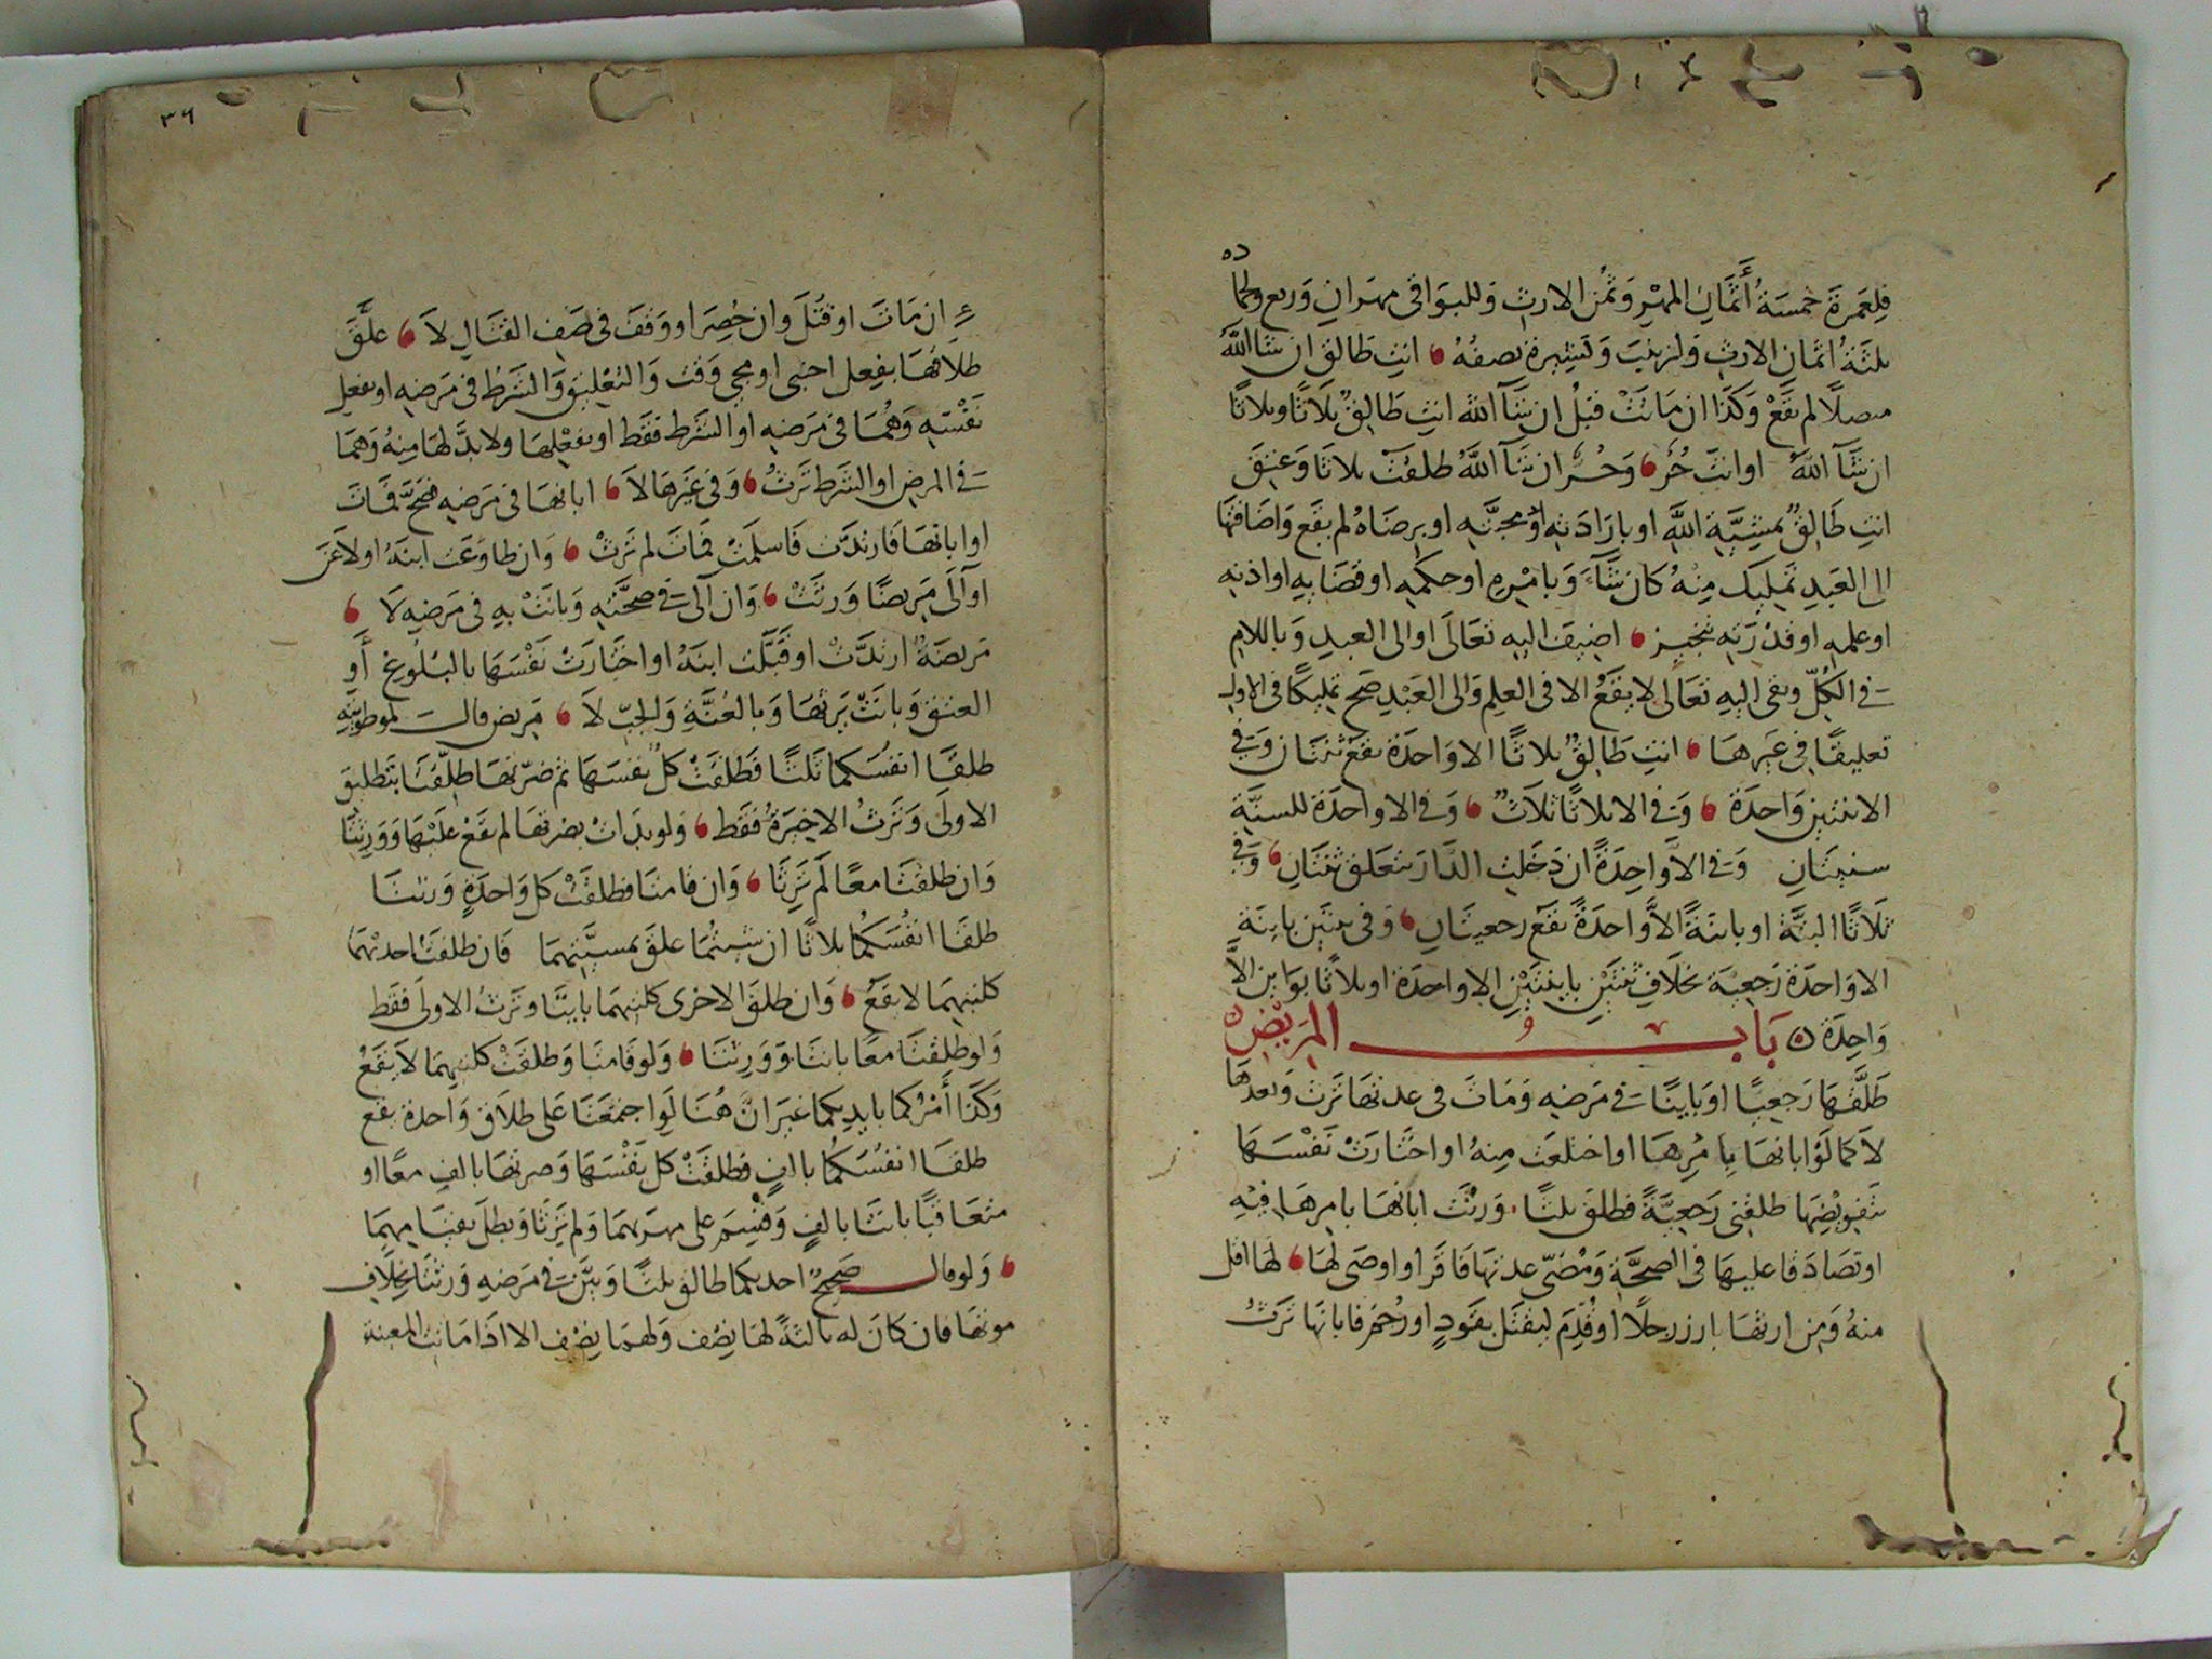 فلِعَمرَةَ خمسَةُ أَثمَانِ المهْرِ وَثمُن الارثِ وَللبَوَاقى مهرَانِ وَربع ولحمادَه
ثلثَةُ اثمَان الارثِ وَلزينبَ وَبَشِيرة نصفُهُ انتِ طَالق ان شآ اللهُ
متصلًا لم يقَعْ وَكَذا ان مَاتَتْ قبلُ ان شَآ الله انتِ طَالِقٌ ثلَاثًا وثلاثًا
ان شَآ اللهُ اوانتَ حُرٌّ وَحُرٌّ ان شَآ اللهُ طلقتْ ثلاثا وَعتِقَ
انتِ طَالِقٌ بمشِيَّةِ اللهِ او بارَادَتِهِ او بمحبَّتِهِ او برضَاهُ لم يقَع وَاضَافتهَا
الى العَبدِ تَمليك مِنهُ كان شآءَ وَبامْرِهِ او حكمِهِ او قضَايِهِ او اذنِهِ
او علمِهِ او قدْرَتِهِ تنجيز اضيفَ اليهِ تعَالَى او الى العبدِ وَباللامِ
فى الكُلّ وبفى اليهِ تعَالى لا يقَعُ الا فى العلِم وَالى العَبْدِ صَح تمليكًا فى الاولِ
تعليقًا فى غَيرهَا انتِ طَالِقٌ ثلاثًا الا وَاحدَة يقعُ ثِنتَان وَفى
الا ثنتين وَاحدَة وَفى الا ثلاثًا ثلَاثٌ وَفى الا واحدَة للسنيَّةِ
سنيتَانِ وَفى الاَّ وَاحِدَةً ان دَخَلتِ الدَّارَ يتعَلق ثنتَانِ وَفى
ثلَاثًا البتَّةَ او باينَةً الاَّ وَاحدَةً يقَع رجعيتَانِ وَفى ثنتَين باينَةٍ
الا وَاحدَة رَجعِيَّة بخلَافِ ثنتَيْنِ باينتَيْنِ الا واحدَة او ثلاثًا بوَاين الاَّ
وَاحِدَة بَابُ المَريْضِ
طَلَّقَهَا رَجعِيًّا او بَاينًا فى مَرضِهِ وَمَاتَ فى عدتهَا تَرث وَبعدهَا
لاَ كمَا لَوْ ابانهَا بِامْرِهَا او اختلعَت مِنهُ او اختَارَتْ نَفسَهَا
بتَفويْضِهَا طلقنِى رَجعِيَّةً فطلق ثلثًا وَرثَتْ ابانهَا بامرهَا فيْهِ
او تصَادَقا عليهَا فى الصحَّةِ وَمُضىّ عدتهَا فَاقَر او اوصَى لهَا لهَا اقل
منهُ وَمِن ارثهَا بارز رجلًا او قُدِّمَ ليقتَل بقَودٍ او رُجمَ فابانهَا تَرثُ
ان مَاتَ او قُتلَ وان حُصِرَ او وَقفَ فى صَف القتَالِ لاَ علَّقَ
طلاقهَا بفِعل اجنبى او بمجى وَقت وَالتعْليقُ وَالشرْطُ فى مَرضِهِ او بفعلِ
نَفْسِهِ وَهُمَا فى مَرضِهِ او الشرْط فقَط او بفعْلِهَا ولا بدَّ لهَا مِنهُ وَهمَا
فى المرضِ او الشرَط تَرثُ وَفى غَيْرهَا لاَ ابانهَا فى مَرَضِهِ فصَحَّ فمَاتَ
او ابانهَا فارتدَّت فَاسلمَتْ فمَاتَ لم تَرثْ وَان طاوعَت ابنَهُ او لاعَنَ
او آلَى مَريضًا وَرثَتْ وَان آلى فى صحَّتِهِ وَبانَتْ بهِ فى مَرَضِهِ لَا
مَريضَةٌ ارتدَّتْ او قَبَّلَت ابنَهُ او اختَارَتْ نَفسَهَا بالبلُوغِ أَو
العتق وَبانَتْ يَرثهَا وَبالعُنَّةِ وَالجَبّ لَا مَريض قالَ لموطوئتَيْهِ
طلقَا انفسَكما ثلثًا فطَلقَتْ كلٌّ نفسَهَا ثم ضرّتهَا طلقتَا بتَطليق
الاولَى وَتَرثُ الاخيَرةُ فقَط وَلو بدَات بضرتهَا لم يقعْ علَيْهَا وَوَرِثتَا
وَان طلقتَا معًا لَم تَرِثَا وَان قامتَا فطلقتْ كل وَاحدَةٍ وَرثتَا
طلقَا انفُسَكُما ثلاثًا ان شئتُمَا علق بمشيَّتِهمَا فان طلقت احدٰيهمَا
كلتَيهِمَا لا يقَعُ وَان طلقَ الاخرى كلتَيهمَا باينًا وترثُ الاولَى فقَط
وَلو طلقتَا معًا بانتَا وَوَرِثتَا وَلو قامتَا وَطلقَتْ كلتَيهِمَا لَا يقَعُ
وَكَذا أمْرُكما بايدِيكما غيَر انَّ هُنَا لَوِ اجتمعَتَا عَلى طلَاق وَاحدة يقع
طلقَا انفُسَكُما بالفٍ فطلقَتْ كلٌّ نفْسَهَا وَضرتهَا بالفٍ معًا او
متعَاقبًا بانتَا بالفٍ وَقُسِمَ على مهرَيهمَا وَلم يَرثَا وَبطل بقيَامِهِمَا
وَلو قالَ صَحِيحٌ احديكما طالق ثلثًا وَبيَّن فى مَرَضِهِ وَرثتَا بخِلافِ
موتهَا فان كانَ له ثالثةٌ لهَا نِصْف وَلهمَا نِصْف الا اذا مَاتت المعينة
٣٦